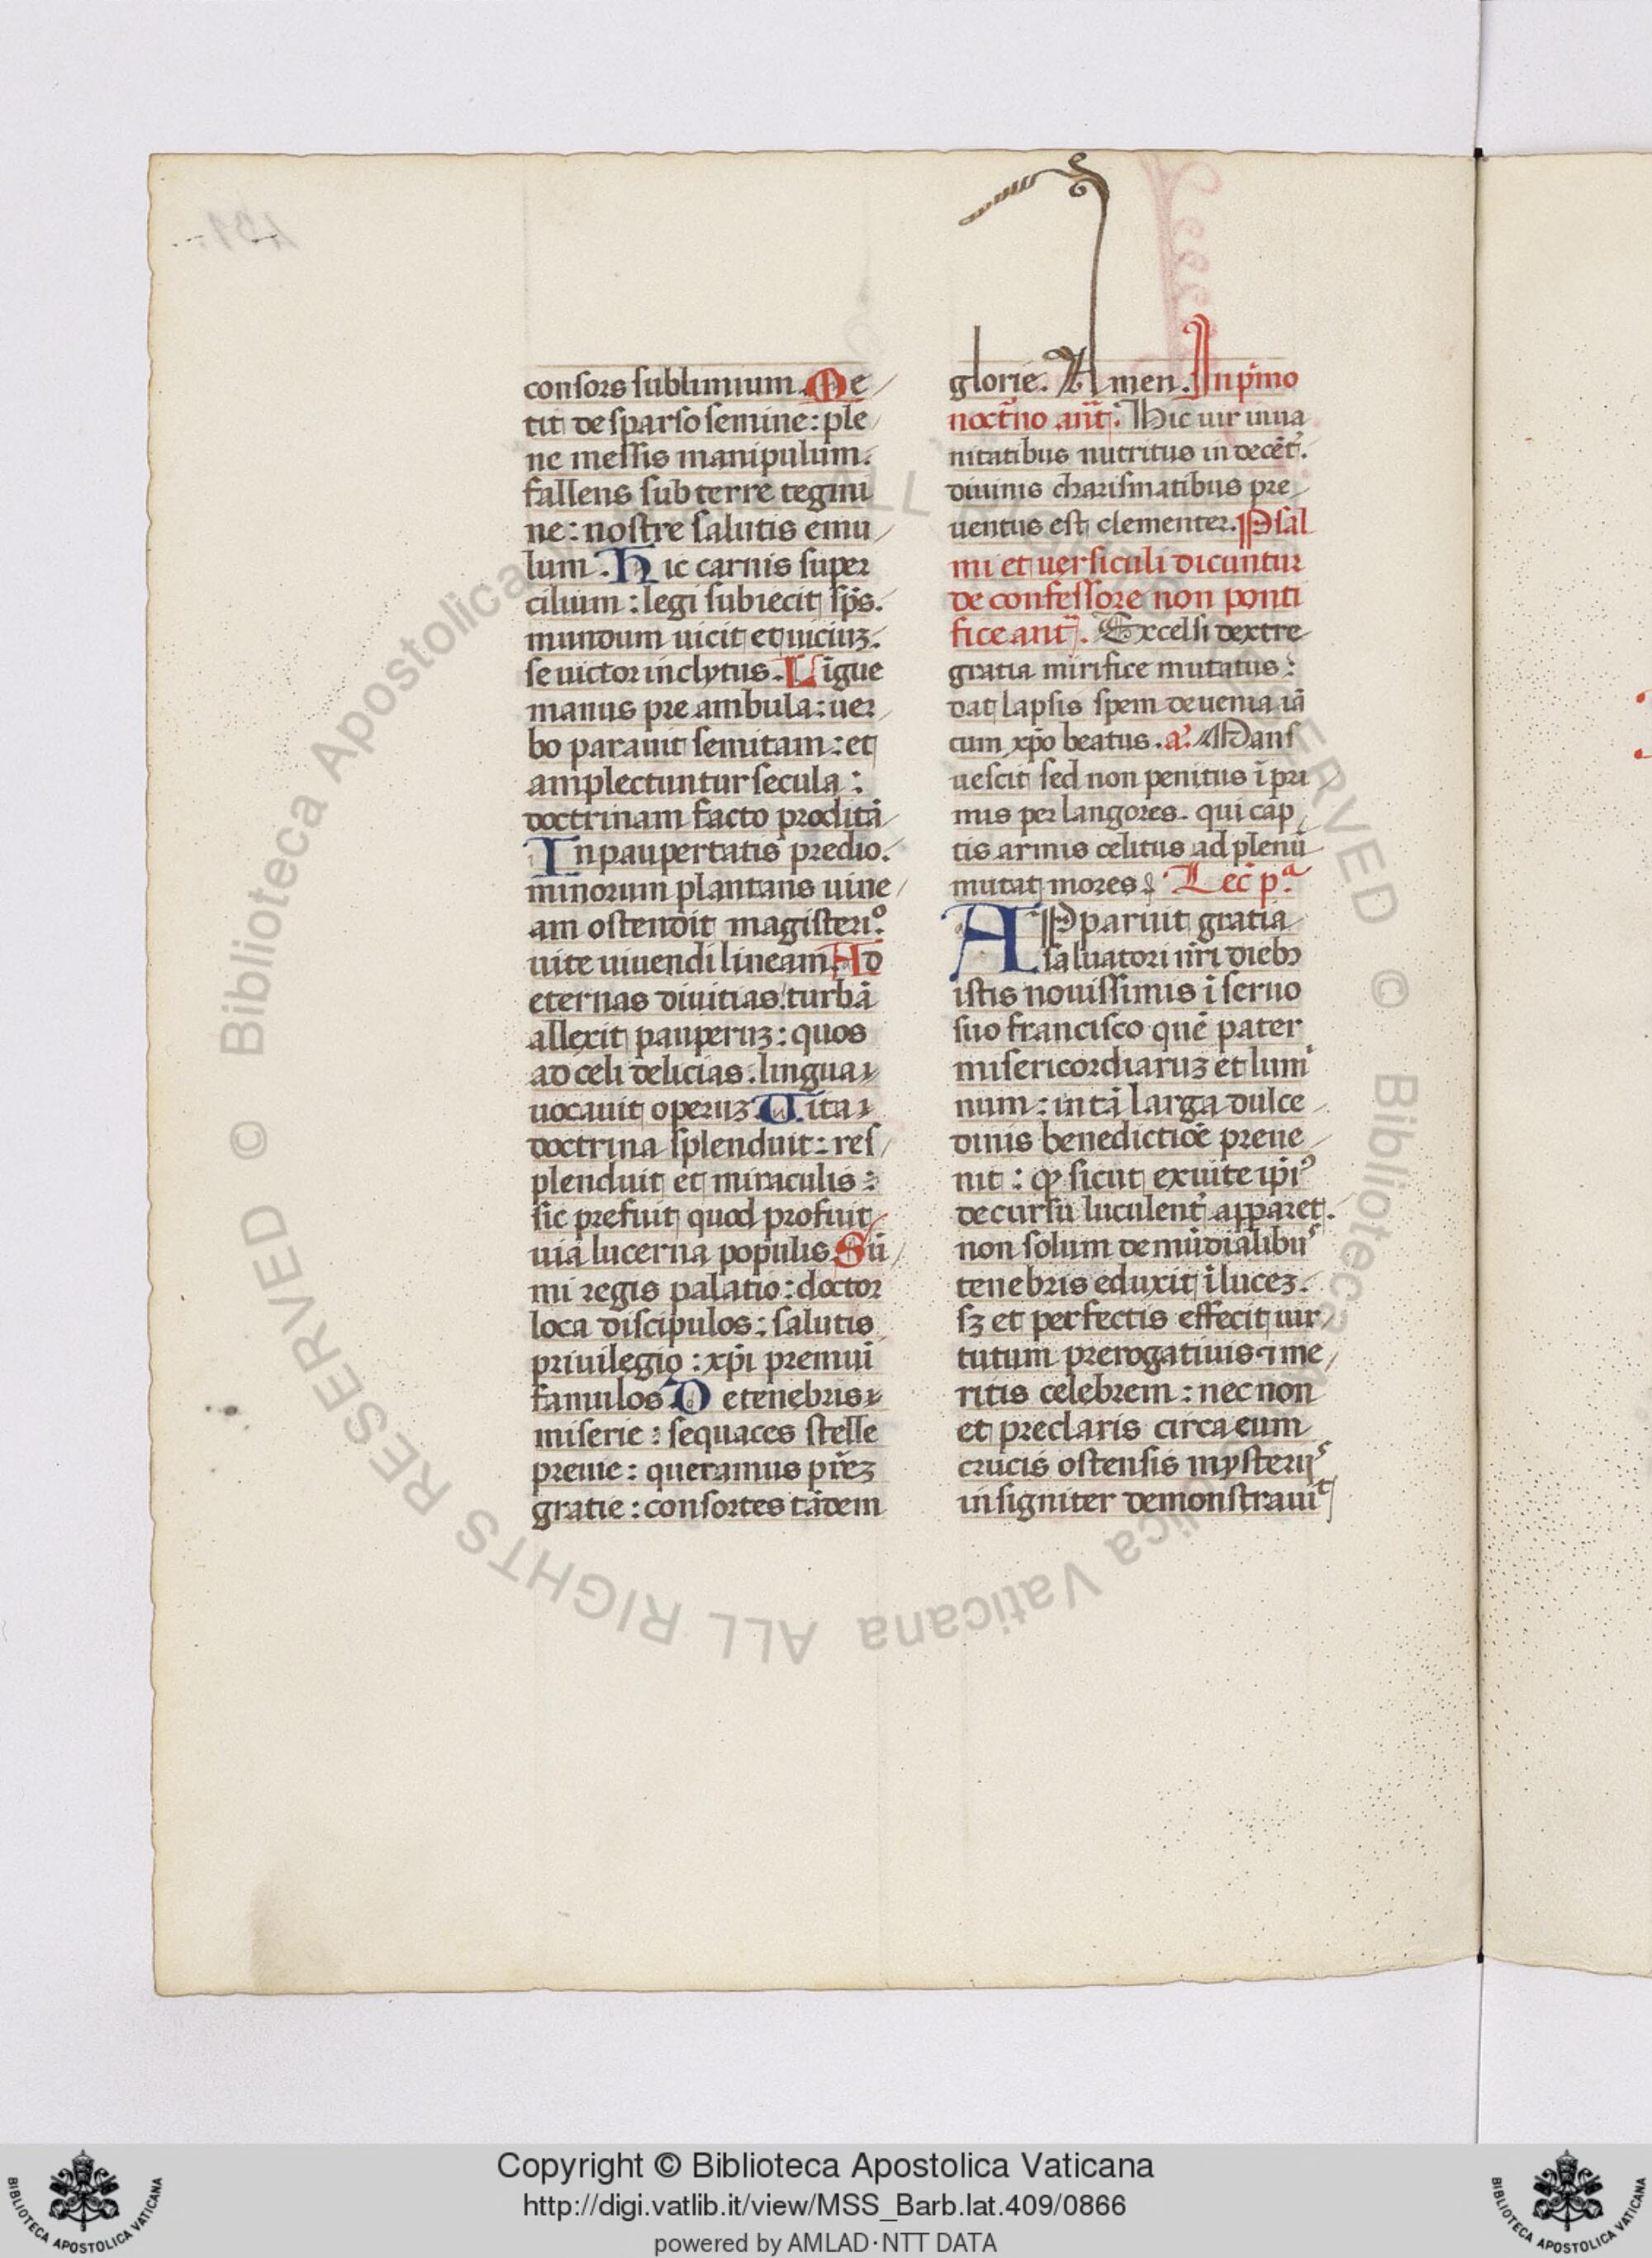 consors sublimium. Me
tit de sparso semine: ple
ne messis manipulum.
fallens sub terre tegmi
ne: nostre salutis emu
lum. Hic carnis super
cilium: legi subiecit sp̄s.
mundum uicit et uiciuꝫ.
se uictor inclytus. Ligue
manus pre ambula: uer
bo parauit semitam: et
amplectuntur secula:
doctrinam facto proditā
In paupertatis predio.
minorum plantans uine
am ostendit magisteri⁹.
uite uiuendi lineam. Ad
eternas diuitias: turbā
allexit pauperuꝫ: quos
ad celi delicias. lingua
uocauit operuꝫ. Uita
doctrina splenduit: res
plenduit et miraculis:
sic prefuit quod profuit
uia lucerna populis. Sū
mi regis palatio: doctor
loca discipulos: salutis
priuilegio: xp̄i premuī
famulos. De tenebris
miserie: sequaces stelle
preuie: queramus pr̄eꝫ
gratie: consortes tādem
glorie. Amen. In pimo
noct̄no añt. Hic uir inua
nitatibus nutritus indecēt'.
diuinis charismatibus pre
uentus est clementer. Psal
mi et uersiculi dicuntur
de confessore non ponti
fice añt. Excelsi dextre
gratia mirifice mutatus:
dat lapsis spem de uenia iā
cum xp̄o beatus. a'. Mans
uescit sed non penitus ī pri
mis per langores. qui cap
tis armis celitus ad plenū
mutat mores. Lec̄ pᵃ
APparuit gratia
saluatori nr̄i diebꝫ
istis nouissimis ī seruo
suo francisco quē pater
misericordiaruꝫ et lumi
num: in tā larga dulce
dinis benedictiōe preue
nit: ꝙ sicut ex uite ip̄i⁹
decursu luculent' apparet.
non solum de mūdialibus
tenebris eduxit ī luceꝫ.
sꝫ et perfectis effecit uir
tutum prerogatiuis ⁊ me
ritis celebrem: nec non
et preclaris circa eum
crucis ostensis mysterijs
insigniter demonstrauit
© Biblioteca Apostolica Vaticana ALL RIGHTS RESERVED
Copyright © Biblioteca Apostolica Vaticana
http://digi.vatlib.it/view/MSS_Barb.lat.409/0866
powered by AMLAD·NTT DATA
BIBLIOTECA APOSTOLICA VATICANA
BIBLIOTECA APOSTOLICA VATICANA